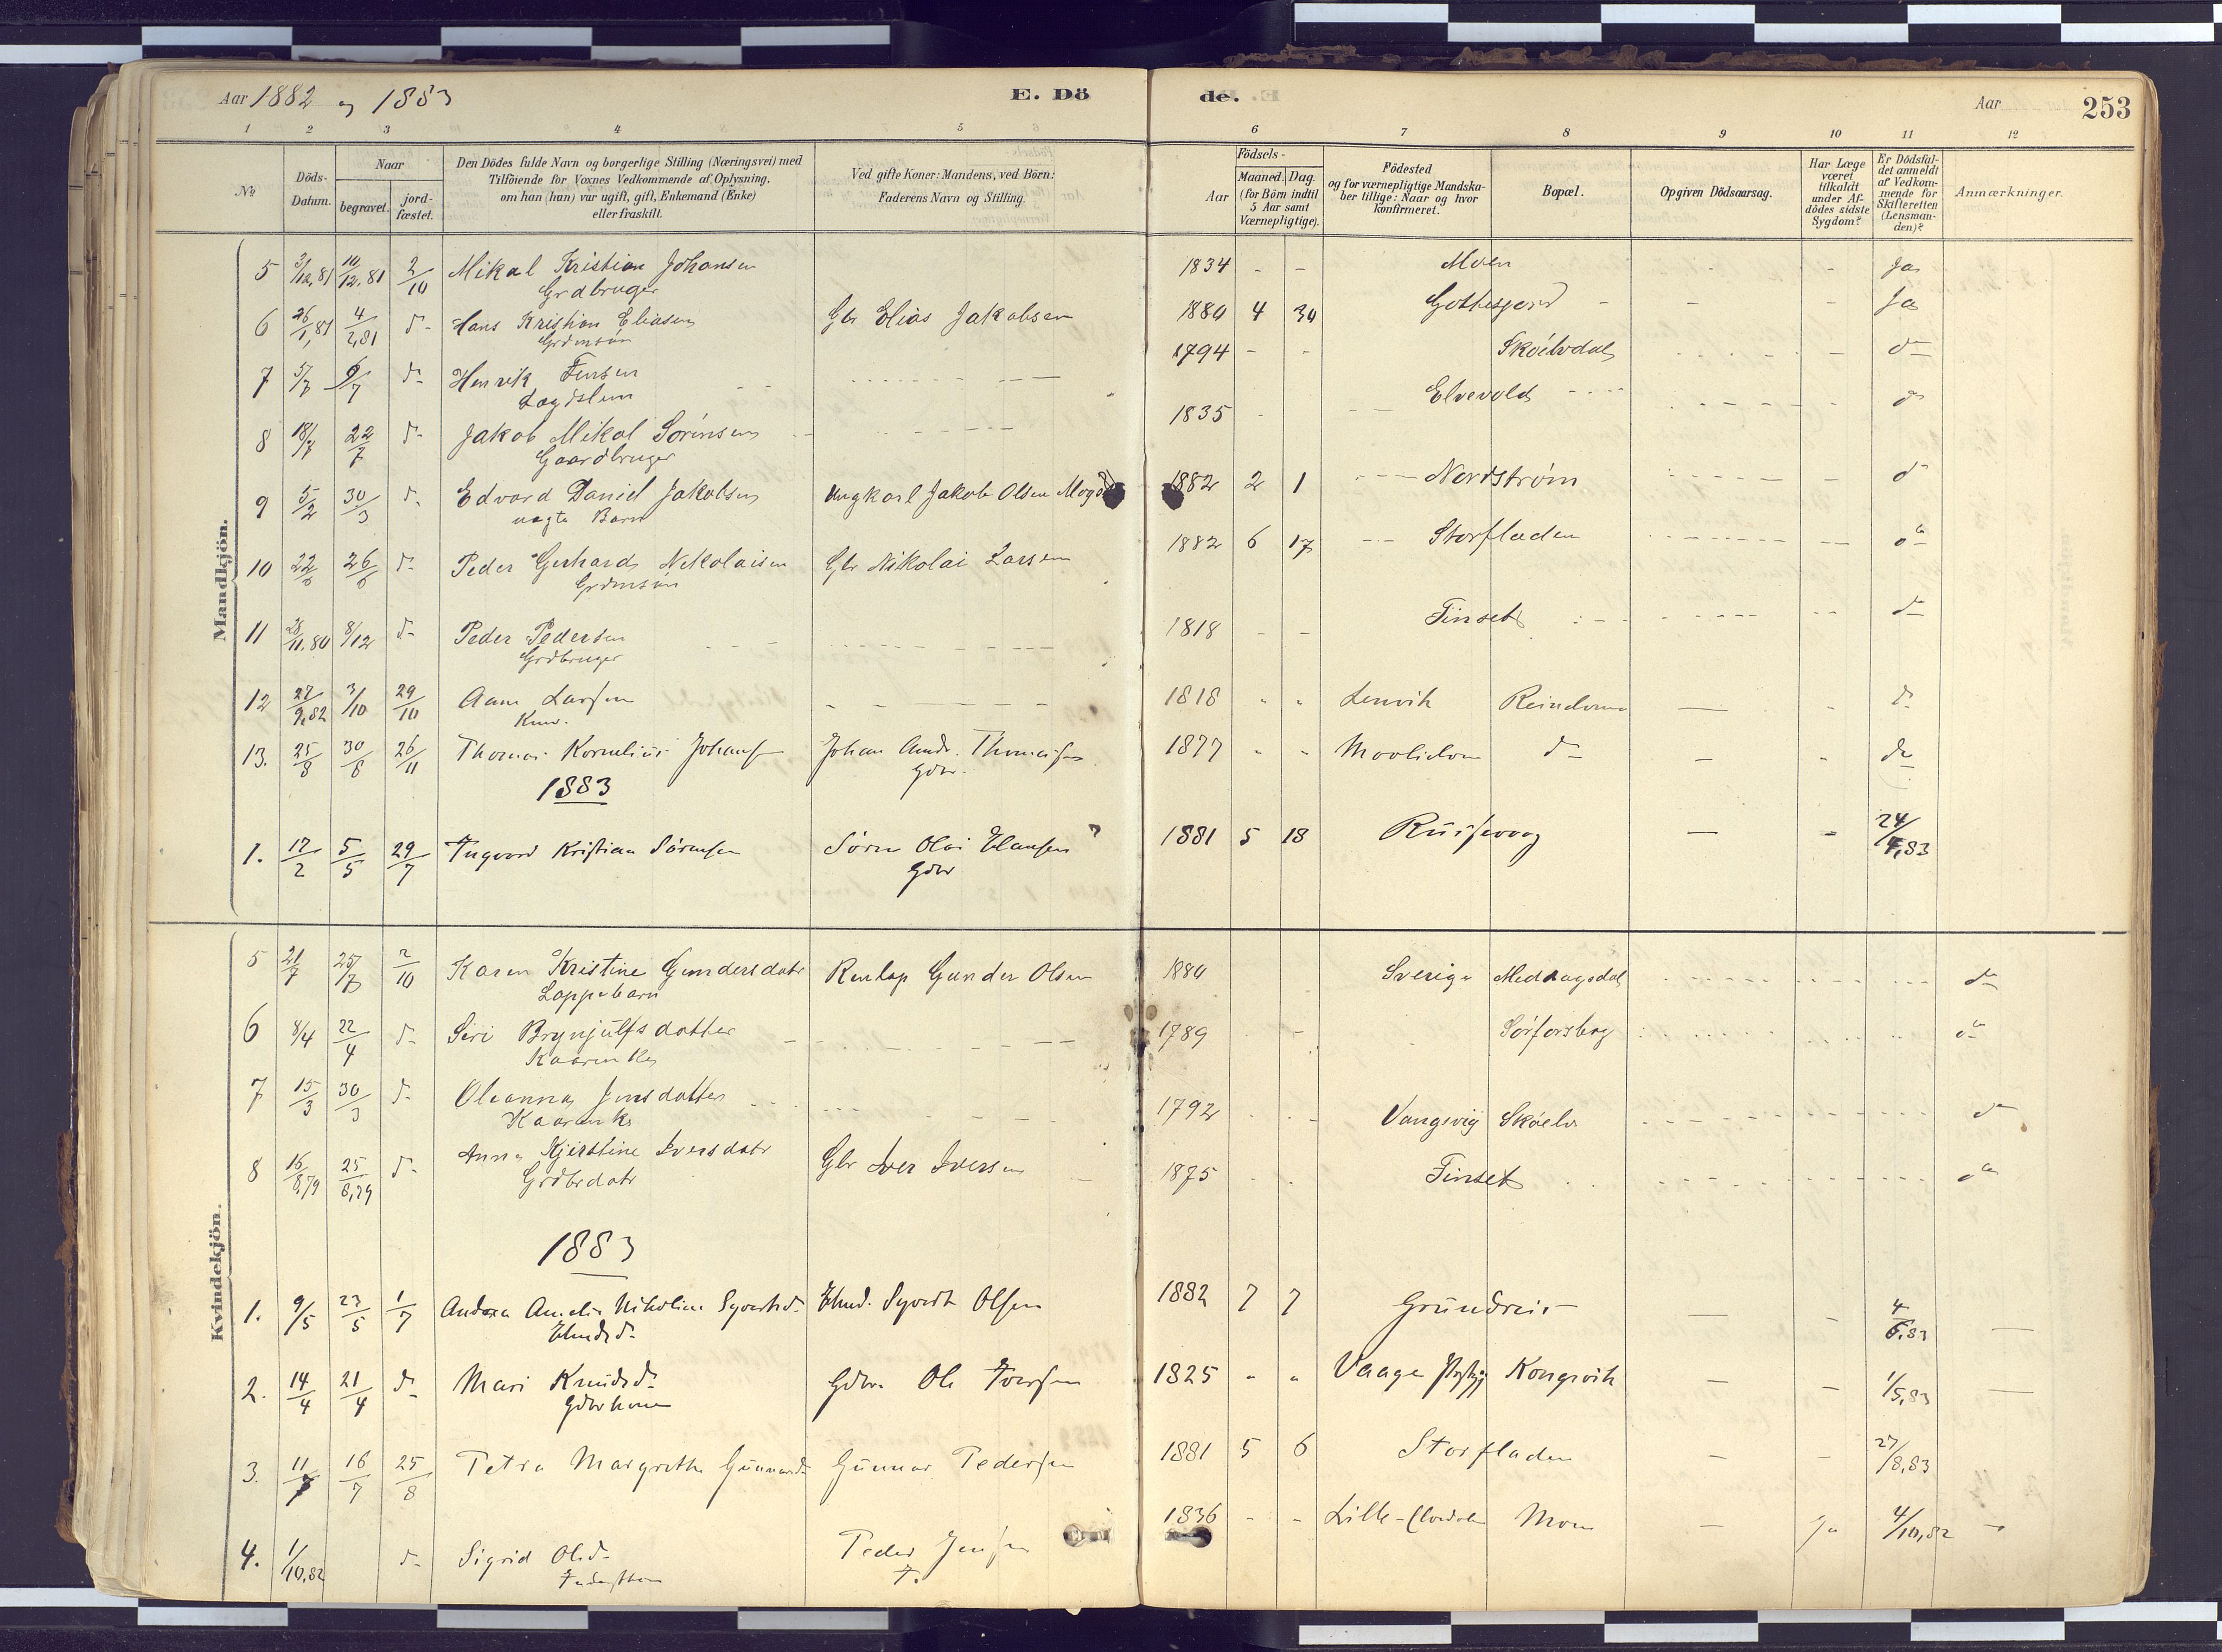 Aar 1882 og 1883 E. Dö de. Aar 253
1 2 3 4 5 6 7 8 9 10 11 12
No Döds-Datum. Naar begravet. jord-fæstet. Den Dödes fulde Navn og borgerlige Stilling (Næringsvei) med Tilföiende for Voxnes Vedkommende af Oplysning, om han (hun) var ugift, gift, Enkemand (Enke) eller fraskilt. Ved gifte Koner: Mandens, ved Börn: Faderens Navn og Stilling. Födsels- Aar Maaned. Dag. (for Börn indtil 5 Aar samt Værnepligtige). Födested og for værnepligtige Mandskaber tillige: Naar og hvor konfirmeret. Bopæl. Opgiven Dödsaarsag. Har Læge været tilkaldt under Afdödes sidste Sygdom? Er Dödsfaldet anmeldt af Vedkommende for Skifteretten (Lensmanden)? Anmærkninger.
Mandkjön.
5 3/12,81 10/12,81 2/10 Mikal Kristian Johansen 1834 - - Moen - - Ja
Grdbruger
6 26/1,81 4/2,81 do Hans Kristian Eliasen Gbr Elias Jakobsen 1880 4 30 Gottesjord - - - Ja
Grdmsön
7 5/7 9/7 do Henrik Jensen 1794 - - Sköelvdal do
Lægdslem
8 18/7 22/7 do Jakob Mikal Sörensen 1835 - Elvevold do
Gaardbruger
9 5/2 30/3 do Edvard Daniel Jakobsen Ungkarl Jakob Olsen 1882 2 1 Nordström do
uægte Barn
10 22/6 26/6 do Peder Gerhard Nikolaisen Gbr Nikolai Larsen 1882 6 17 Storfladen do
Grdmsön
11 28/11,80 8/12 do Peder Pedersen 1818 - - Finset do
Grdbruger
12 27/9,82 3/10 29/10 Larsen 1818 " " Lenvik - do
13. 25/8 30/8 26/11 Thomas Kornelius Johansen Johan Andr. Thomassen 1877 " " do - do
Gdbr.
1883
1. 17/2 5/5 29/7 Ingvard Kristian Sörensen Sören Olai Hansen 1881 5 18 - - 24/5,83
Gdbr
Kvindekjön.
5 21/7 25/7 2/10 Karen Kristine Gundersdatr Gunder Olsen 1880 Sverige do
Lappebarn
6 8/4 22/4 do Siri Brynjulfsdatter 1789 - Sörforsberg do
Kaarenke
7 15/3 30/3 do Oleanna Jensdatter 1792 Vangsvig Sköelv do
Kaarenke
8 16/8,79 25/8,79 do Anna Kjerstine Iversdatr Gbr Iver Iversen 1875 Finset do
Grdbrdatr
1883
1. 9/5 23/5 1/7 Andrea Amalie Nikoline Syvertsd. Syvert Olsen 1882 7 7 Grundreis - - 4/6,83 -
2. 14/4 21/4 do Mari Knudsd. Gdbr. Ole Iversen 1825 " " Vaage Kongsvik - - 1/5,83 -
Gdbrkone
3. 11/7 16/7 25/8 Petra Margrethe Gunnarsd. Gunnar Pedersen 1881 5 6 Storfladen - - 27/8,83
4. 1/10,82 do Sigrid Olsd. Peder Jensen 1836 - - Moen - Ja 4/10,82 -